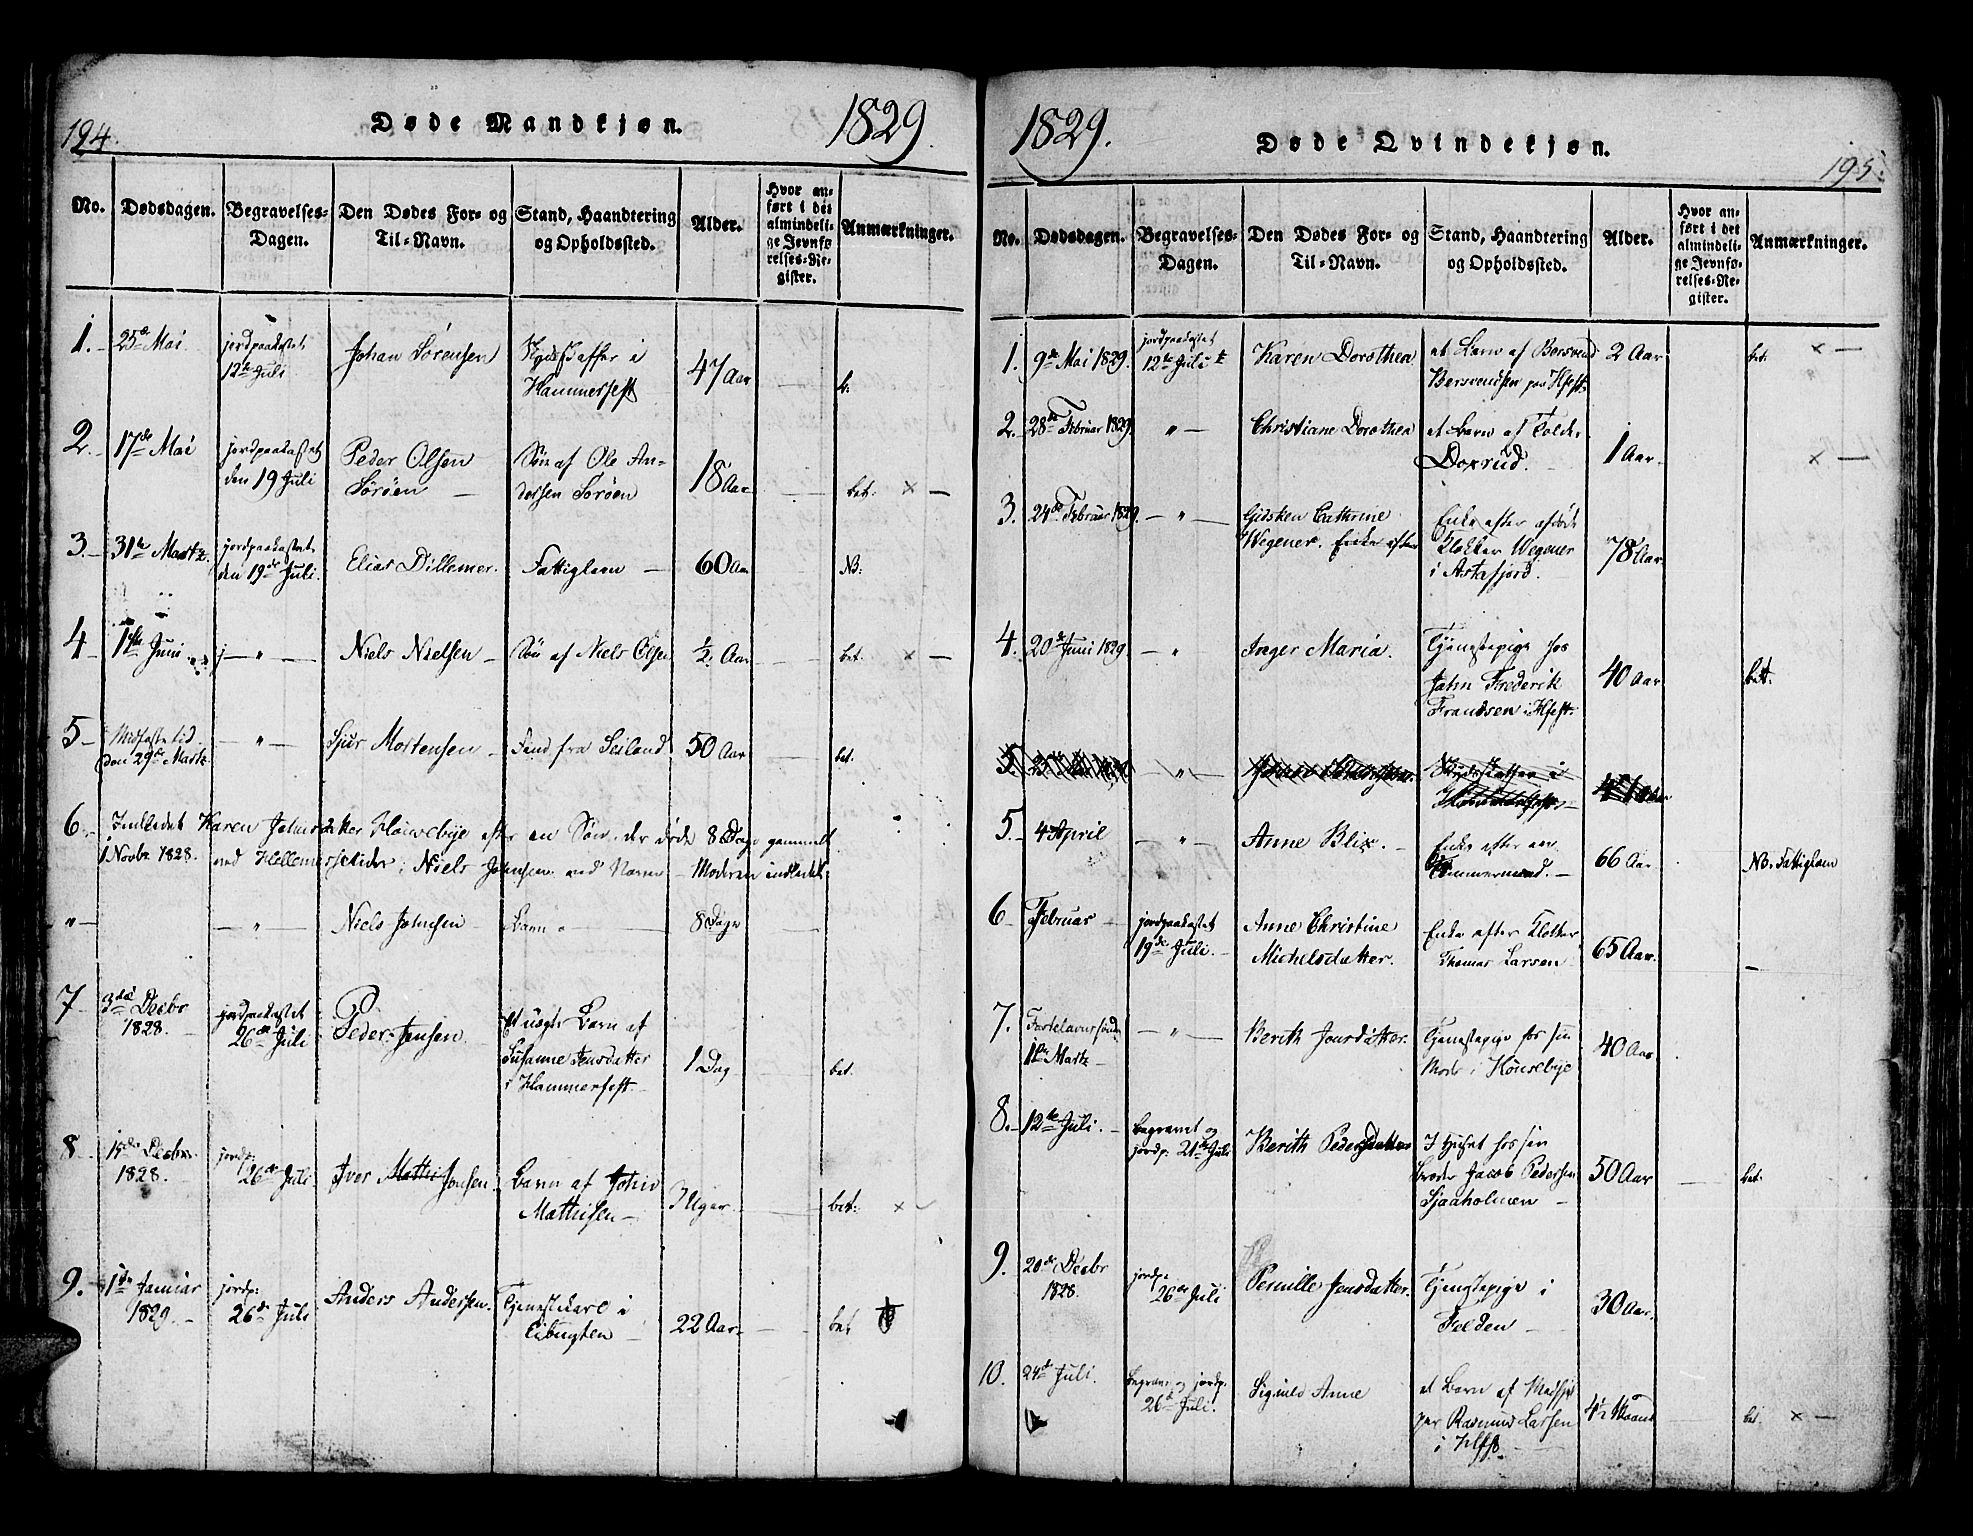 194.
Døde Mandkjøn.
1829.
No.
Dødsdagen.
Begravelses-
Dagen.
Den Dødes For- og
Til-Navn.
Stand, Haandtering
og Opholdssted.
Alder.
Hvor an-
ført i det
almindeli-
ge Jevnfø-
relses-Re-
gister.
Anmærkninger.
1. 25de Mai
jordpaakastet
12te Juli
Johan Sörensen
i
Hammerfest
47 Aar
b.
2. 17de Mai
jordpaakastet
den 19 Juli
Peder Olsen
Söröen
Sön af Ole An-
dersen Söröen
18 Aar
bet: × —
3. 31te Martz.
jordpaakastet
den 19de Juli.
Elias Dillemer.
Fattiglem —
60 Aar
NB:
4 Juni
" —
Niels Nielsen —
Sön af Niels Olsen
½ Aar
bet. × —
5 Midfaste tid
den 29de Martz.
— " —
Sjur Mortensen —
Find fra Seiland
50 Aar
bet.
6. Indledet Karen Johnsdatter Hönsebye efter en Sön, der döde 8 Dage gammelt
1 Novbr 1828. ved Niels Johnsen ved Navn — Moderen indledet.
" —
— " —
Niels Johnsen
Barn " —
8 Dage
7 3de Decbr
1828. —
jordpaakastet
26de Juli
Peder Jensen
Et uægte Barn af
Susanne Jensdatter
i Hammerfest —
1 Dag
bet.
8 15de Decbr.
1828. —
jordp:
26de Juli
Iver Mathis Jonsen.
Barn af John
Mathisen —
Uger
bet: ×
9. 1ste Januar
1829. —
jordp:
26de Juli
Anders Andersen.
Tjenestekarl i
Eibugten —
22 Aar
bet
1829.
Døde Qvindekjøn.
195.
No.
Dødsdagen.
Begravelses-
Dagen.
Den Dødes For- og
Til-Navn.
Stand, Haandtering
og Opholdssted.
Alder.
Hvor an-
ført i det
almindeli-
ge Jevnfø-
relses-Re-
gister.
Anmærkninger.
1. 9de Mai 1829.
jordpaakastet
12te Juli
Karen Dorothea
et Barn af Bersvend
Bersvendsen paa Hfest.
2 Aar
bet: × —
2. 28de Februar 1829.
" —
Christiane Dorothea
et Barn af Tolder
Doxrud. —
1 Aar.
× —
3. 24de Februar 1829.
— " —
Gidsken Cathrine
Wegener. Enke efter
Enke efter afdöde
Klokker Wegener
i Astafjord. —
78 Aar
4. 20de Juni 1829
— "
Inger Maria.
Tjenestepige hos
John Frederik
Frandsen i Hfest.
40 Aar
bet.
5. — " —
Hammerfest —
5. 4 April
— "
Anne Blix. —
Enke efter en
Tömmermand. —
66 Aar
NB. Fattiglem
6 Februar —
jordpaakastet
19de Juli. —
Anne Christine
Michelsdatter.
Enke efter Klokker
Thomas Larsen
65 Aar.
—
7. Fastelavnssöndag
1ste Martz —
— " —
Berith Jonsdatter.
Tjenestepige hos sin
Moder i Hönsebye
40 Aar
8. 12te Juli. —
Begravet og
jordp: 21de Juli
Berith Pedersdatter
I Huset hos sin
broder Jacob Pedersen
Sjaaholmen —
50 Aar
bet.
9. 20de Decbr
1828.
jordp:
26de Juli
Pernille Jensdatter.
Tjenestepige i
Felden —
30 Aar.
10. 24de Juli.
Begravet og jordp.
26de Juli.
Anne
et Barn af
Rasmus Larsen
i Hfst.
4½ Maaned
bet. × —